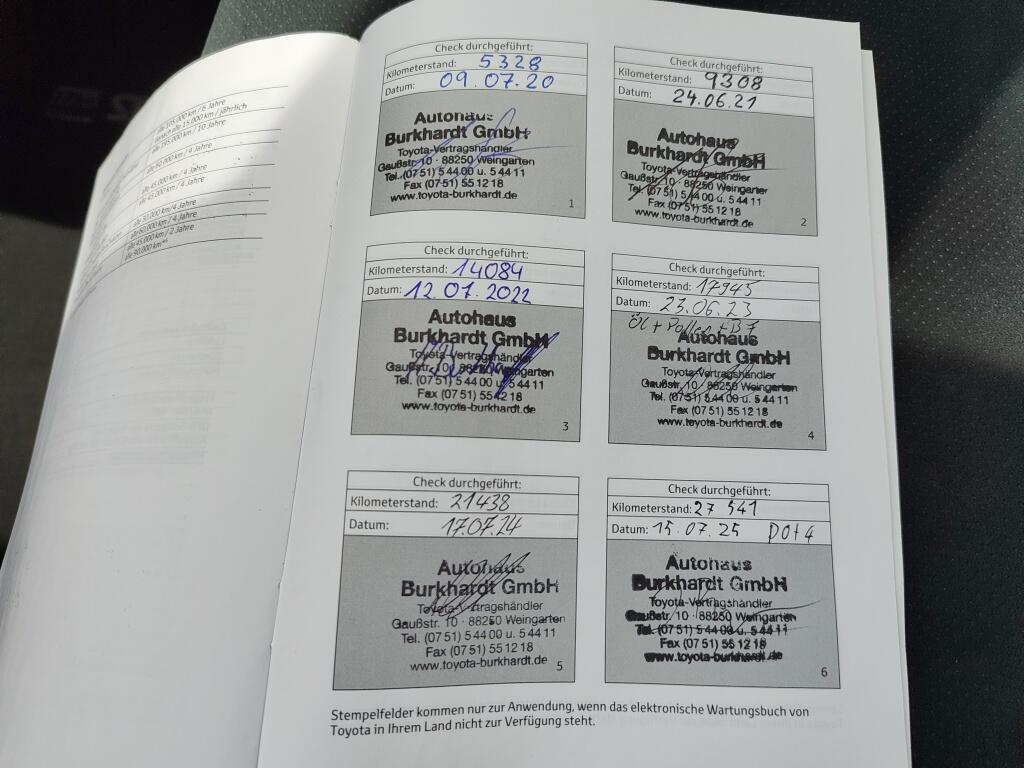 alle 105.000 km / 6 Jahre
danach alle 15.000 km / jährlich
alle 195.000 km / 10 Jahre
alle 60.000 km / 4 Jahre
alle 45.000 km / 4 Jahre
alle 45.000 km / 4 Jahre
alle 30.000 km/4 Jahre
alle 60.000 km / 4 Jahre
alle 45.000 km / 2 Jahre
alle 90.000 km
Check durchgeführt:
Kilometerstand: 5328
Datum: 09.07.20
Autohaus
Burkhardt GmbH
Toyota-Vertragshändler
Gaußstr. 10 · 88250 Weingarten
Tel. (07 51) 5 44 00 u. 5 44 11
Fax (07 51) 55 12 18
www.toyota-burkhardt.de
1
Check durchgeführt:
Kilometerstand: 9308
Datum: 24.06.21
Autohaus
Burkhardt GmbH
Toyota-Vertragshändler
Gaußstr. 10 · 88250 Weingarten
Tel. (07 51) 5 44 00 u. 5 44 11
Fax (07 51) 55 12 18
www.toyota-burkhardt.de
2
Check durchgeführt:
Kilometerstand: 14084
Datum: 12.07.2022
Autohaus
Burkhardt GmbH
Toyota-Vertragshändler
Gaußstr. 10 · 88250 Weingarten
Tel. (07 51) 5 44 00 u. 5 44 11
Fax (07 51) 55 12 18
www.toyota-burkhardt.de
3
Check durchgeführt:
Kilometerstand: 17945
Datum: 23.06.23
Öl + Pollen + BF
Autohaus
Burkhardt GmbH
Toyota-Vertragshändler
Gaußstr. 10 · 88250 Weingarten
Tel. (07 51) 5 44 00 u. 5 44 11
Fax (07 51) 55 12 18
www.toyota-burkhardt.de
4
Check durchgeführt:
Kilometerstand: 21438
Datum: 17.07.24
Autohaus
Burkhardt GmbH
Toyota-Vertragshändler
Gaußstr. 10 · 88250 Weingarten
Tel. (07 51) 5 44 00 u. 5 44 11
Fax (07 51) 55 12 18
www.toyota-burkhardt.de
5
Check durchgeführt:
Kilometerstand: 27 541
Datum: 15.07.25 DOT4
Autohaus
Burkhardt GmbH
Toyota-Vertragshändler
Gaußstr. 10 · 88250 Weingarten
Tel. (07 51) 5 44 00 u. 5 44 11
Fax (07 51) 55 12 18
www.toyota-burkhardt.de
6
Stempelfelder kommen nur zur Anwendung, wenn das elektronische Wartungsbuch von
Toyota in Ihrem Land nicht zur Verfügung steht.